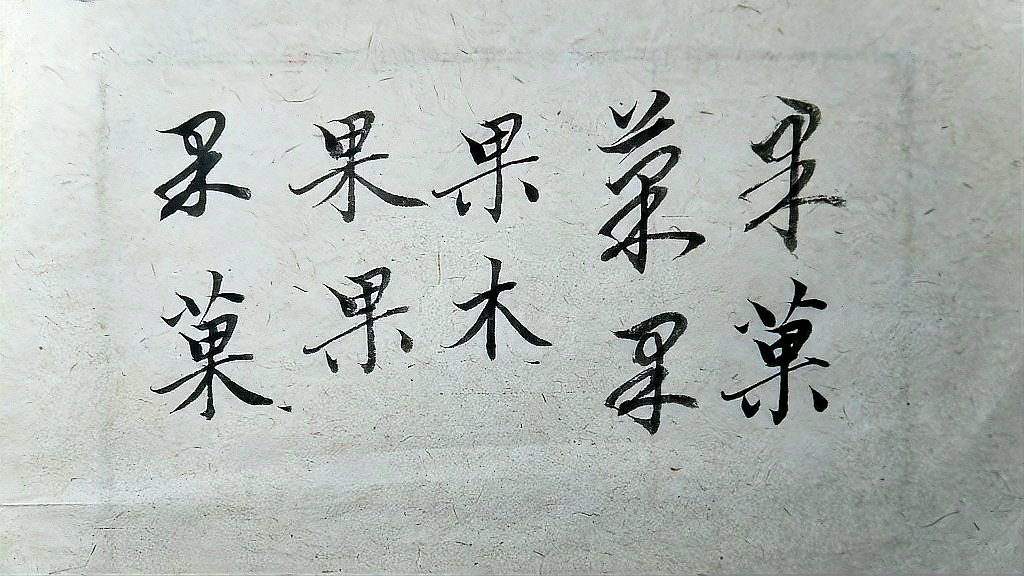 果菓
菓果
果木
果果
果菓